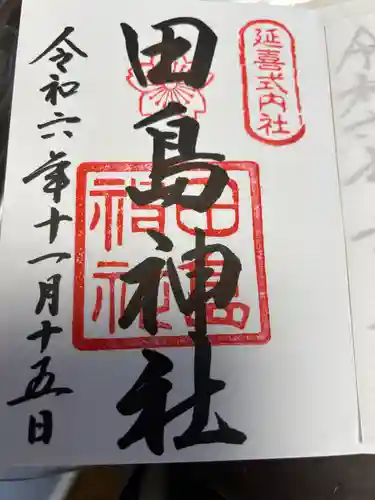 延喜式内社
田島神社
田島神社
令和六年十一月十五日